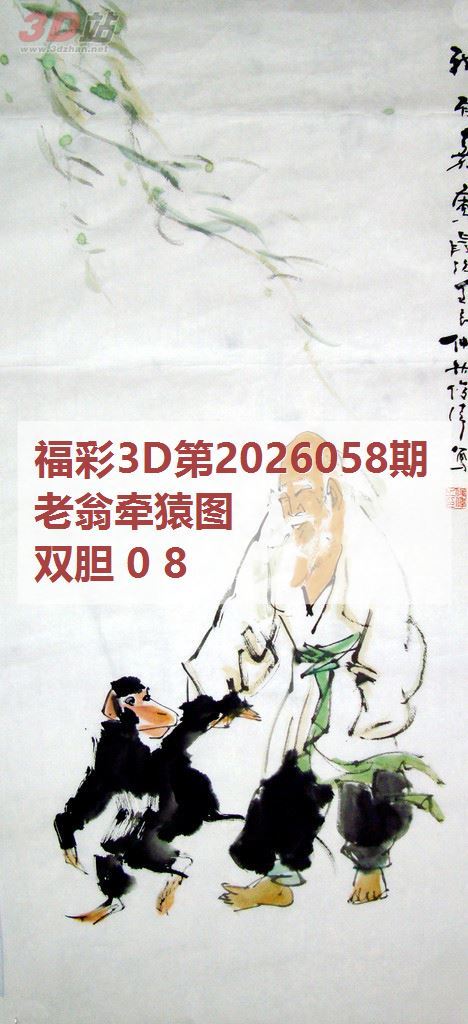 3D站
www.3dzhan.net
福彩3D第2026058期
老翁牵猿图
双胆 0 8